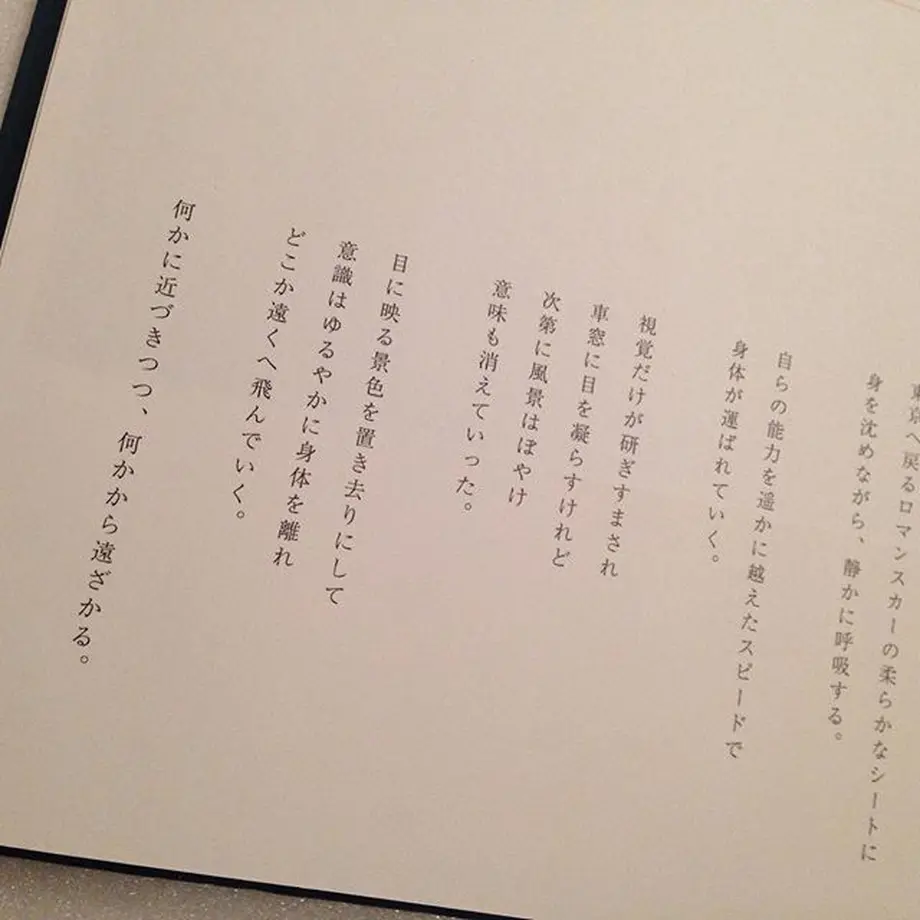 東京へ戻るロマンスカーの柔らかなシートに
身を沈めながら、静かに呼吸する。
自らの能力を遥かに越えたスピードで
身体が運ばれていく。
視覚だけが研ぎすまされ
車窓に目を凝らすけれど
次第に風景はぼやけ
意味も消えていった。
目に映る景色を置き去りにして
意識はゆるやかに身体を離れ
どこか遠くへ飛んでいく。
何かに近づきつつ、何かから遠ざかる。